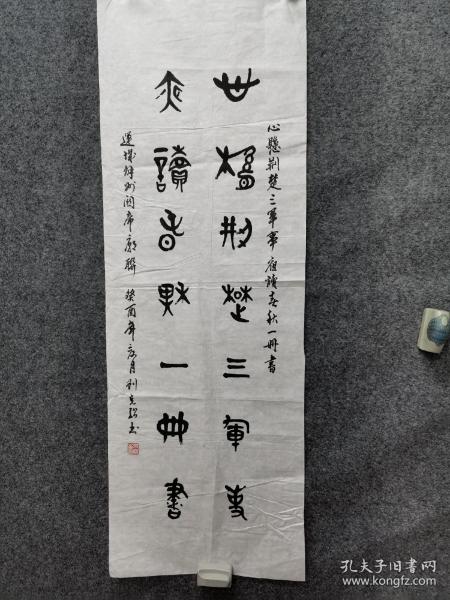 心懸荆楚三軍事夜讀春秋一冊書
心懸荆楚三軍事
夜讀春秋一冊書
運城解州関帝廟聯 癸酉年月刘克书
孔夫子旧书网
www.kongfz.com